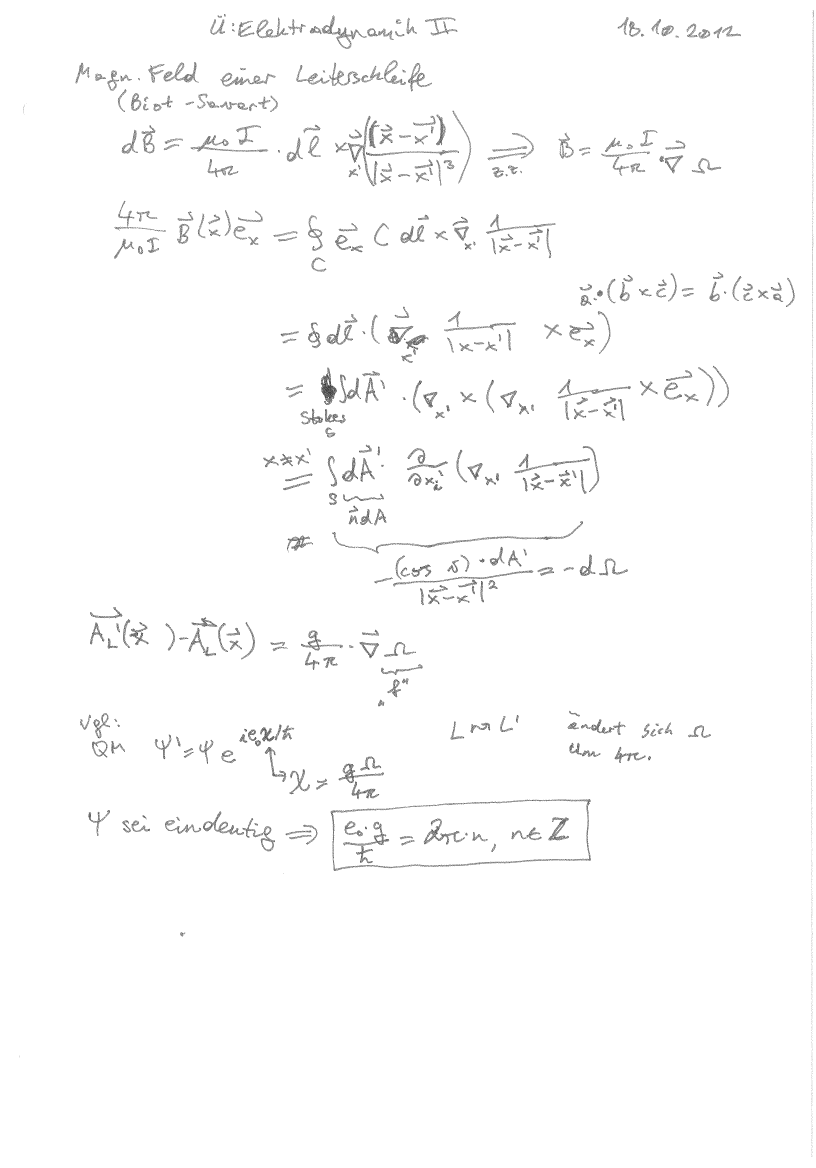 Ü: Elektrodynamik II 18.10.2012
Magn. Feld einer Leiterschleife
(Biot-Savart)
dB⃗ = μ₀I/4π · dl⃗ × ∇⃗_x' ((x⃗-x⃗')/|x⃗-x⃗'|³) ⟹ z.z. B⃗ = μ₀I/4π · ∇⃗ Ω
4π/μ₀I B⃗(x⃗) e⃗ₓ = ∮_C e⃗ₓ ( dl⃗ × ∇⃗_x' 1/|x⃗-x⃗'|
a⃗·(b⃗×c⃗) = b⃗·(c⃗×a⃗)
= ∮ dl⃗ · (∇⃗_x' 1/|x-x'| × e⃗ₓ)
= ∫dA⃗' · (∇_x' × (∇_x' 1/|x⃗-x⃗'| × e⃗ₓ))
Stokes S
x≠x' = ∫_S dA⃗' ∂/∂x_i' (∇_x' 1/|x⃗-x⃗'|)
n⃗dA
-(cos ϑ)·dA'/|x⃗-x⃗'|² = -dΩ
A⃗_L'(x⃗) - A⃗_L(x⃗) = g/4π · ∇⃗ Ω
"f"
Vgl: QM Ψ' = Ψ e^{ie₀χ/ħ} L ⇝ L' ändert sich Ω um 4π.
↳ χ = gΩ/4π
Ψ sei eindeutig ⟹ e₀·g/ħ = 2π·n, n∈ℤ